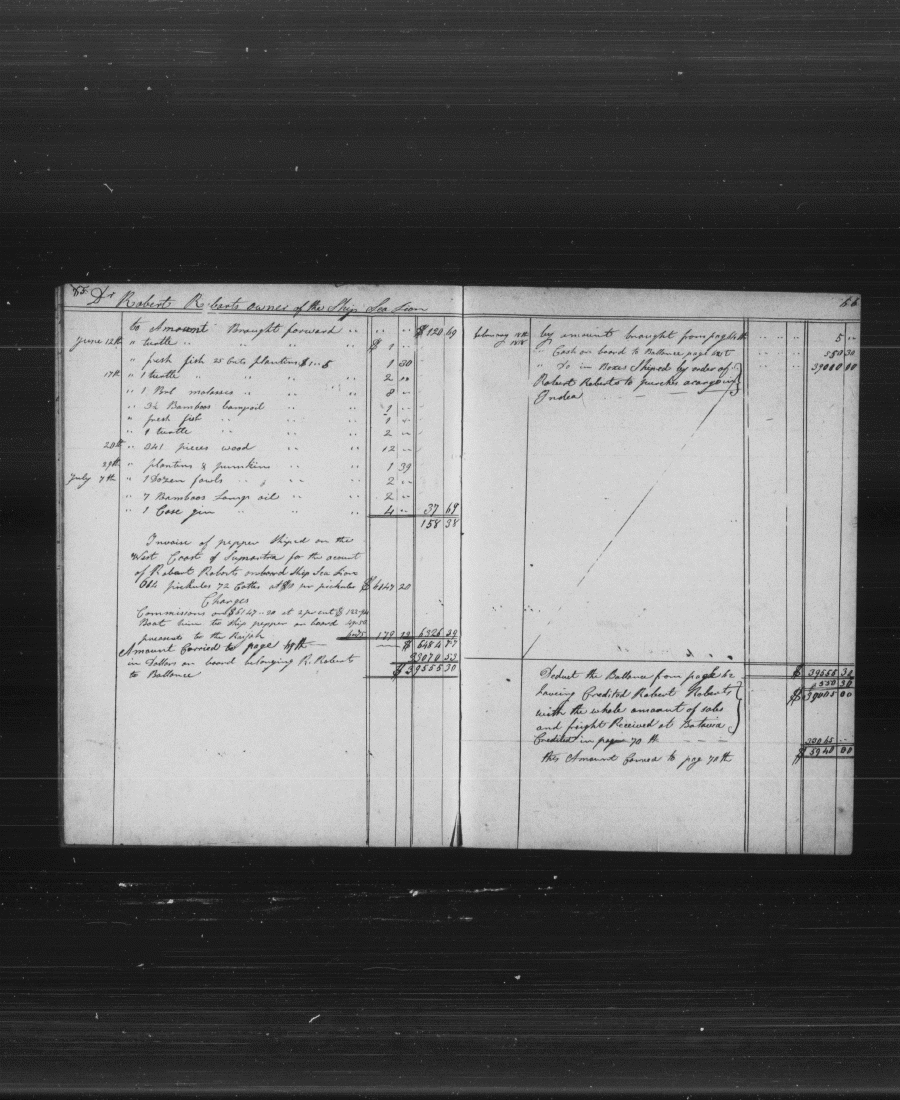 65 Dr Roberts Roberts owner of the Ship Sea Lion
to Amount Brought forward " " " $ 120 69
June 12th " turtle " " " $ 1 "
" fresh fish 25 Cnts plantins $1..5 1 30
17th " 1 turtle " " " 2 "
" 1 Bbl molasses " " 8 "
" 3½ Bamboos 1 "
" fresh fish " " 1 "
" 1 turtle " " 2 "
20th " 341 pieces wood " 12 "
29th " plantins & pumkins " " 1 39
July 7th " 1 Dozen fowls " " " 2 "
" 7 Bamboos Lamp oil " " 2 "
" 1 Case gin " " " 4 " 37 69
158 38
Invoice of pepper Shiped on the
West Coast of Sumantra for the acount
of Robert Roberts onboard Ship Sea Lion
pickules 72 Catties at $ per pickules $ 6147 20
Charges
Commissons on $6147..20 at 2 pr cent $ 122..94
Boat hire to Ship pepper on board
presents to the Rajah 179 19 6326 39
Amount Carried to page 49th $ 6484 77
in Dollars on board belonging R. Roberts 33070 53
to Ballance $ 39555 30
66
february 18th 1818 by amount brought from page 64th " " " 5 "
" Cash on board to Ballance page " " 550 30
" Do in Boxes Shiped by order of " " 39000 00
Robert Roberts to purches a cargo in
Indea
$ 39555 30
Deduct the Ballance from page 62 550 30
haveing Credited Robert Roberts $ 39005 00
with the whole amount of sales
and freight Received at Batavia
Credited in page 70 th
this Amount Carried to page 70th $ 5940 00